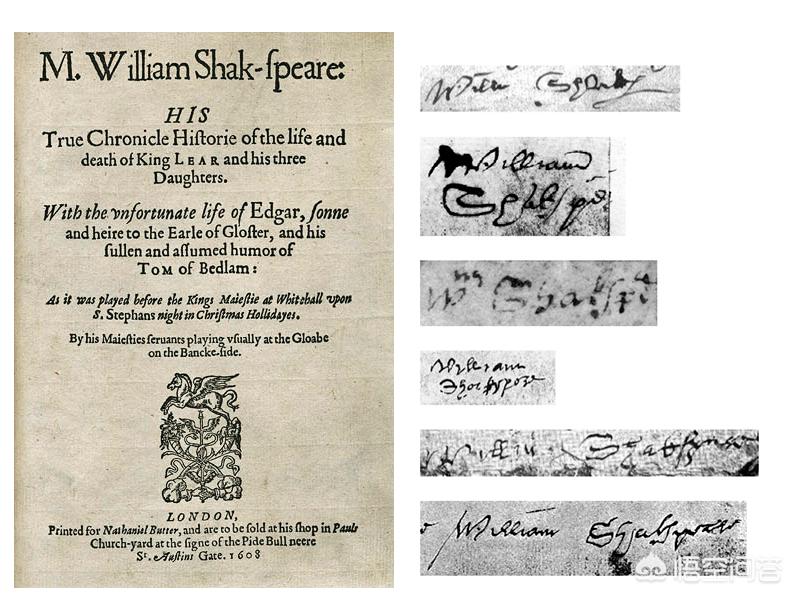 M. William Shak-ſpeare:
HIS
True Chronicle Hiſtorie of the life and
death of King LEAR and his three
Daughters.
With the vnfortunate life of Edgar, ſonne
and heire to the Earle of Gloſter, and his
ſullen and aſſumed humor of
TOM of Bedlam:
As it was played before the Kings Maieſtie at Whitehall vpon
S. Stephans night in Chriſtmas Hollidayes.
By his Maieſties ſeruants playing vſually at the Gloabe
on the Bancke-ſide.
LONDON,
Printed for Nathaniel Butter, and are to be ſold at his ſhop in Pauls
Church-yard at the ſigne of the Pide Bull neere
St. Auſtins Gate. 1608
William
Shakspe
William
Shakspere
William Shakspeare
悟空问答